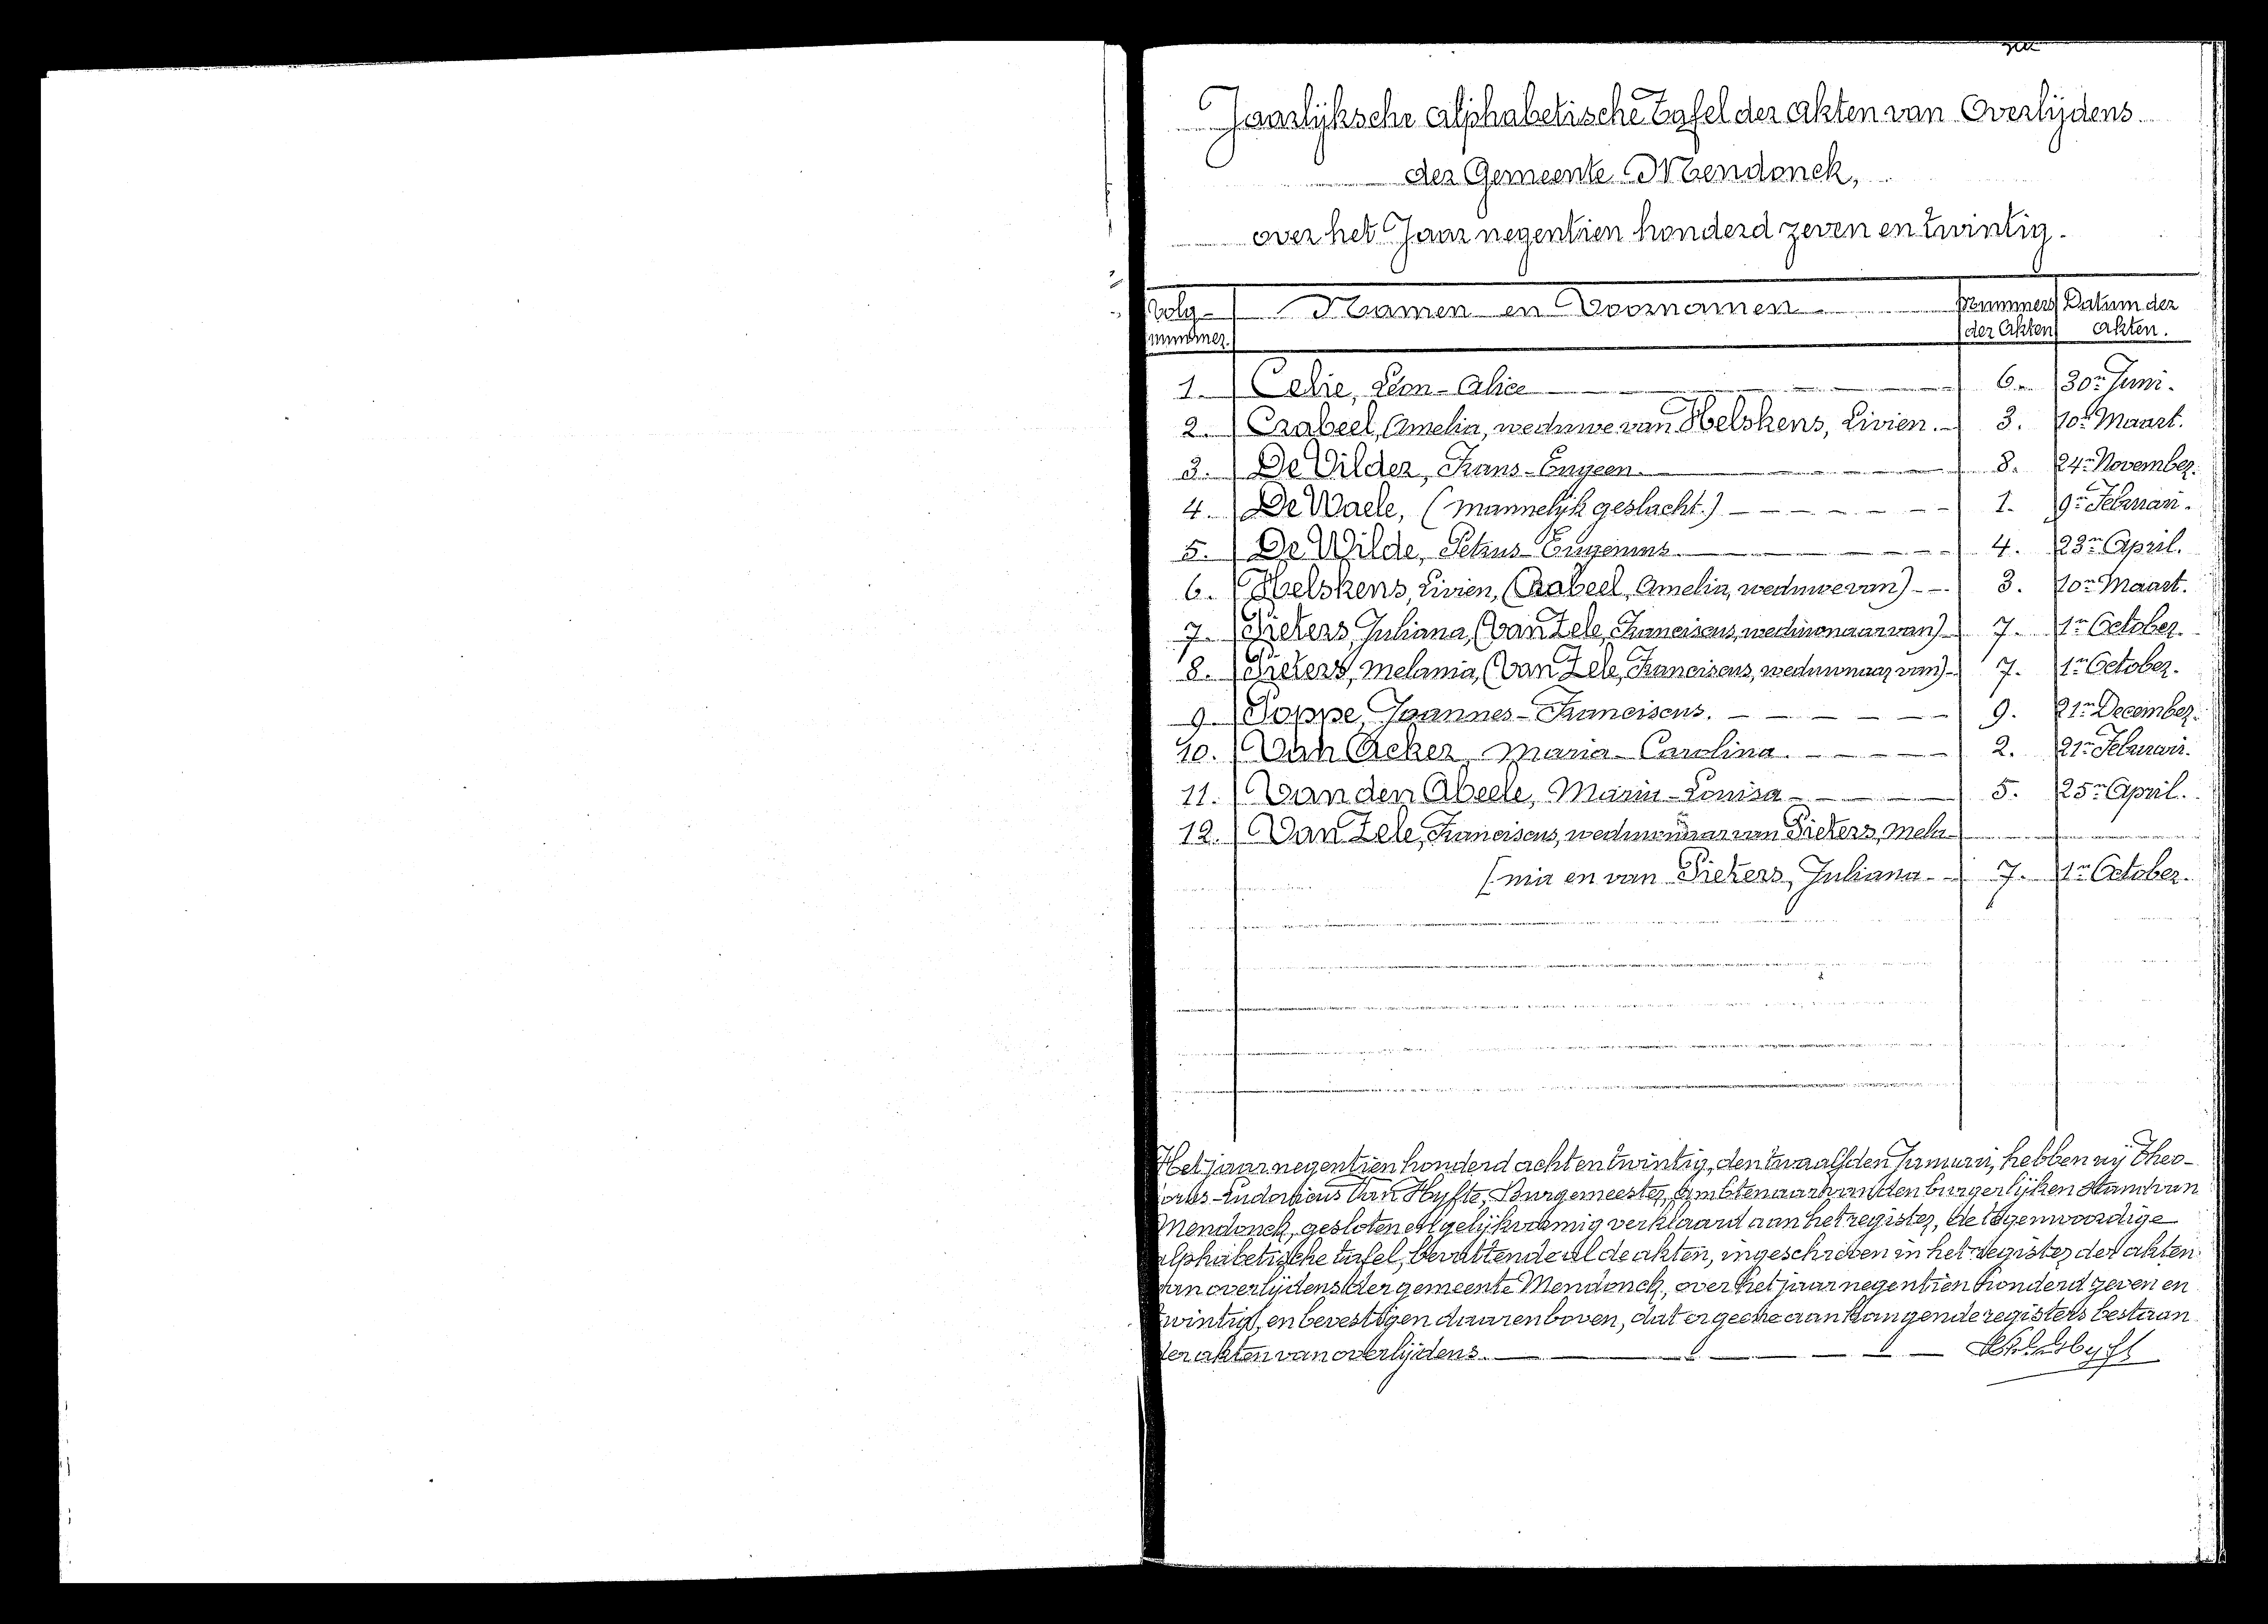 Jaarlijksche alphabetische Tafel der Akten van Overlijdens
der Gemeente Mendonck,
over het Jaar negentien honderd zeven en twintig.
Volg- Namen en Voornamen Nummers Datum der
nummer. der Akten akten.
1. Celie, Léon-Alice 6. 30n Juni.
2. Crabeel, Amelia, weduwe van Helskens, Livien. 3. 10n Maart.
3. De Vilder, Frans-Eugeen. 8. 24n November.
4. De Waele, (mannelijk geslacht.) 1. 9n Februari.
5. De Wilde, Petrus-Eugenius 4. 23n April.
6. Helskens, Livien, (Crabeel, Amelia, weduwe van) 3. 10n Maart.
7. Pieters, Juliana, (Van Zele, Franciscus, weduwnaar van) 7. 1n October.
8. Pieters, Melania, (Van Zele, Franciscus, weduwnaar van) 7. 1n October.
9. Poppe, Joannes-Franciscus. 9. 21n December.
10. Van Acker, Maria-Carolina. 2. 21n Februari.
11. Van den Abeele, Maria-Louisa 5. 25n April.
12. Van Zele, Franciscus, weduwnaar van Pieters, Mela-
[nia en van Pieters, Juliana 7. 1n October.
Het jaar negentien honderd acht en twintig, den twaalfden Januari, hebben wij Theo-
-Ludovicus Van Hyfte, Burgemeester, ambtenaar van den burgerlijken stand van
Mendonck, gesloten en gelijkvormig verklaard aan het register, de tegenwoordige
alphabetische tafel, bevattende al de akten, ingeschreven in het register der akten
van overlijdens der gemeente Mendonck, over het jaar negentien honderd zeven en
twintig, en bevestigen daarenboven, dat er geene aanhangende registers bestaan
der akten van overlijdens.